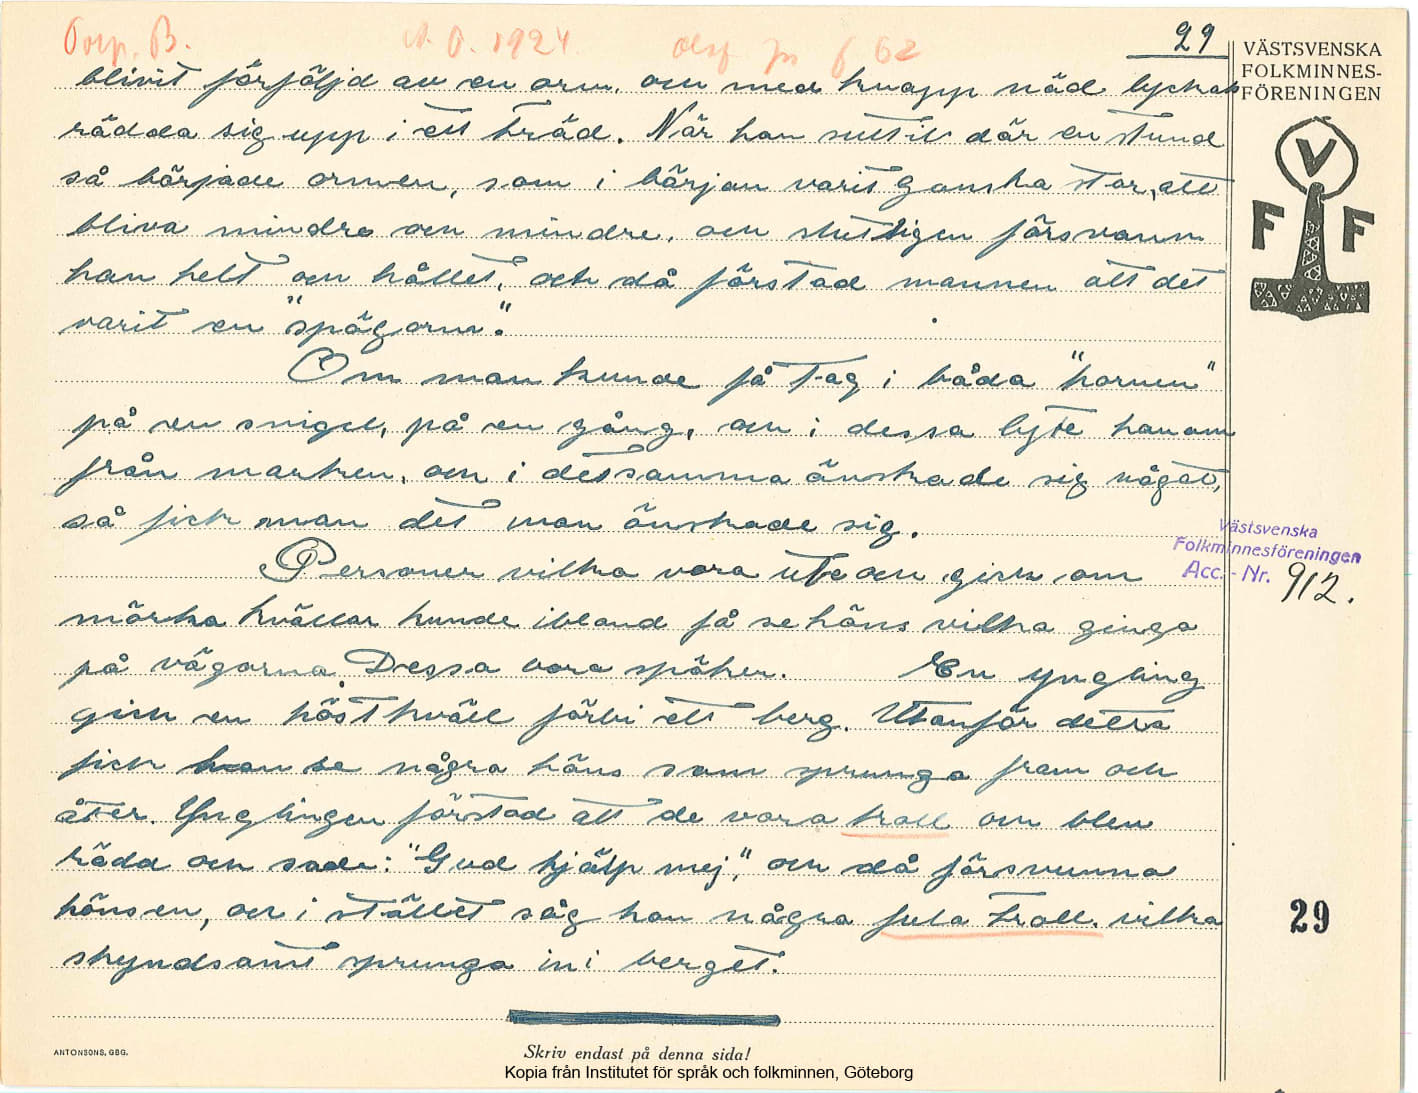 29
VÄSTSVENSKA
FOLKMINNES-
FÖRENINGEN
V
F F
blivit förföljd av en orm, och med knapp nöd lyckats
rädda sig upp i ett träd. När han suttit där en stund
så började ormen, som i början varit ganska stor, att
bliva mindre och mindre, och slutligen försvann
han helt och hållet, och då förstod mannen att det
varit en "spögorm".
Om man kunde få tag i båda "hornen"
på en snigel, på en gång, och i dessa lyfte honom
från marken, och i detsamma önskade sig något,
så fick man det man önskade sig.
Personer vilka vora ute och gick om
mörka kvällar kunde ibland få se höns vilka gingo
på vägarna. Dessa vora spöken. En yngling
gick en höstkväll förbi ett berg. Utanför detta
fick han se några höns som sprungo fram och
åter. Ynglingen förstod att de vora troll och blev
rädd och sade: "Gud hjälp mej", och då försvunno
hönsen, och i stället såg han några fula troll, vilka
skyndsamt sprungo in i berget.
Västsvenska
Folkminnesföreningen
Acc. - Nr. 912.
29
ANTONSONS, GBG.
Skriv endast på denna sida!
Kopia från Institutet för språk och folkminnen, Göteborg